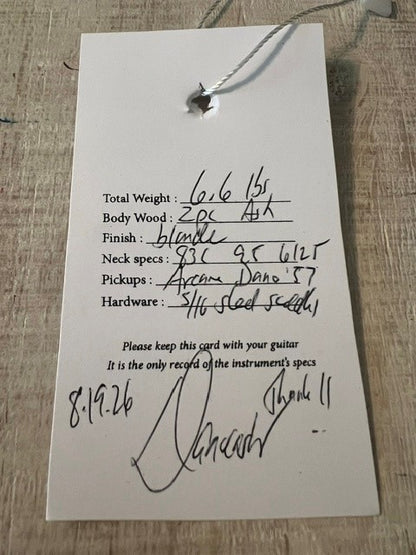 Total Weight : 6.6 lbs
Body Wood : 2pc Ash
Finish : blonde
Neck specs : 83C 9.5 6125
Pickups : Arcane Dano '57
Hardware : 5/16 steel saddles
Please keep this card with your guitar
It is the only record of the instrument's specs
8.19.26
Thank